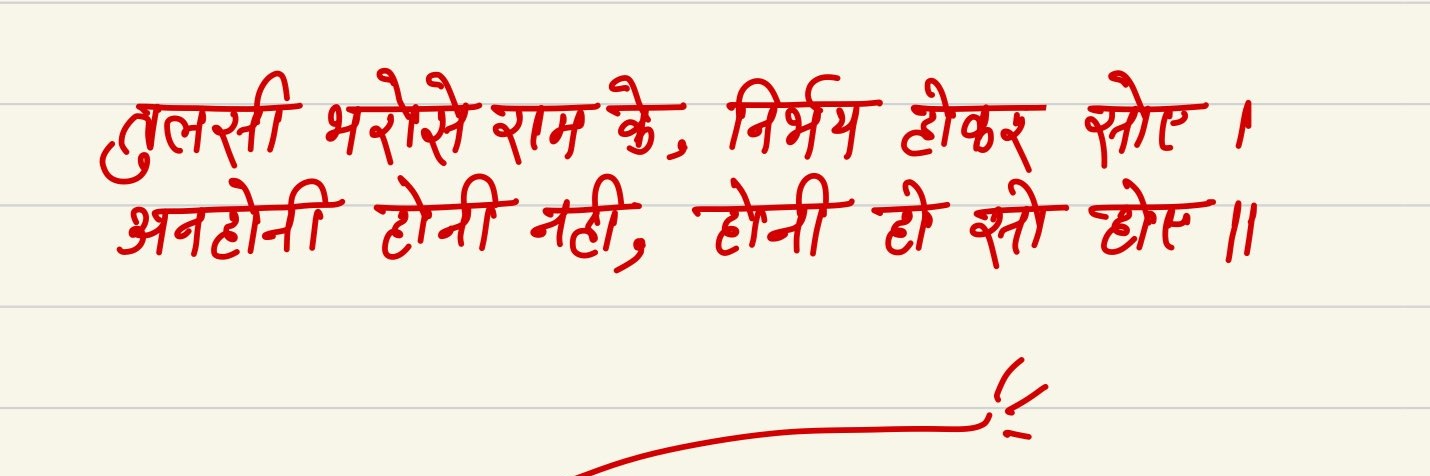 तुलसी भरोसे राम के, निर्भय होकर सोए ।
अनहोनी होनी नही, होनी हो सो होए ॥